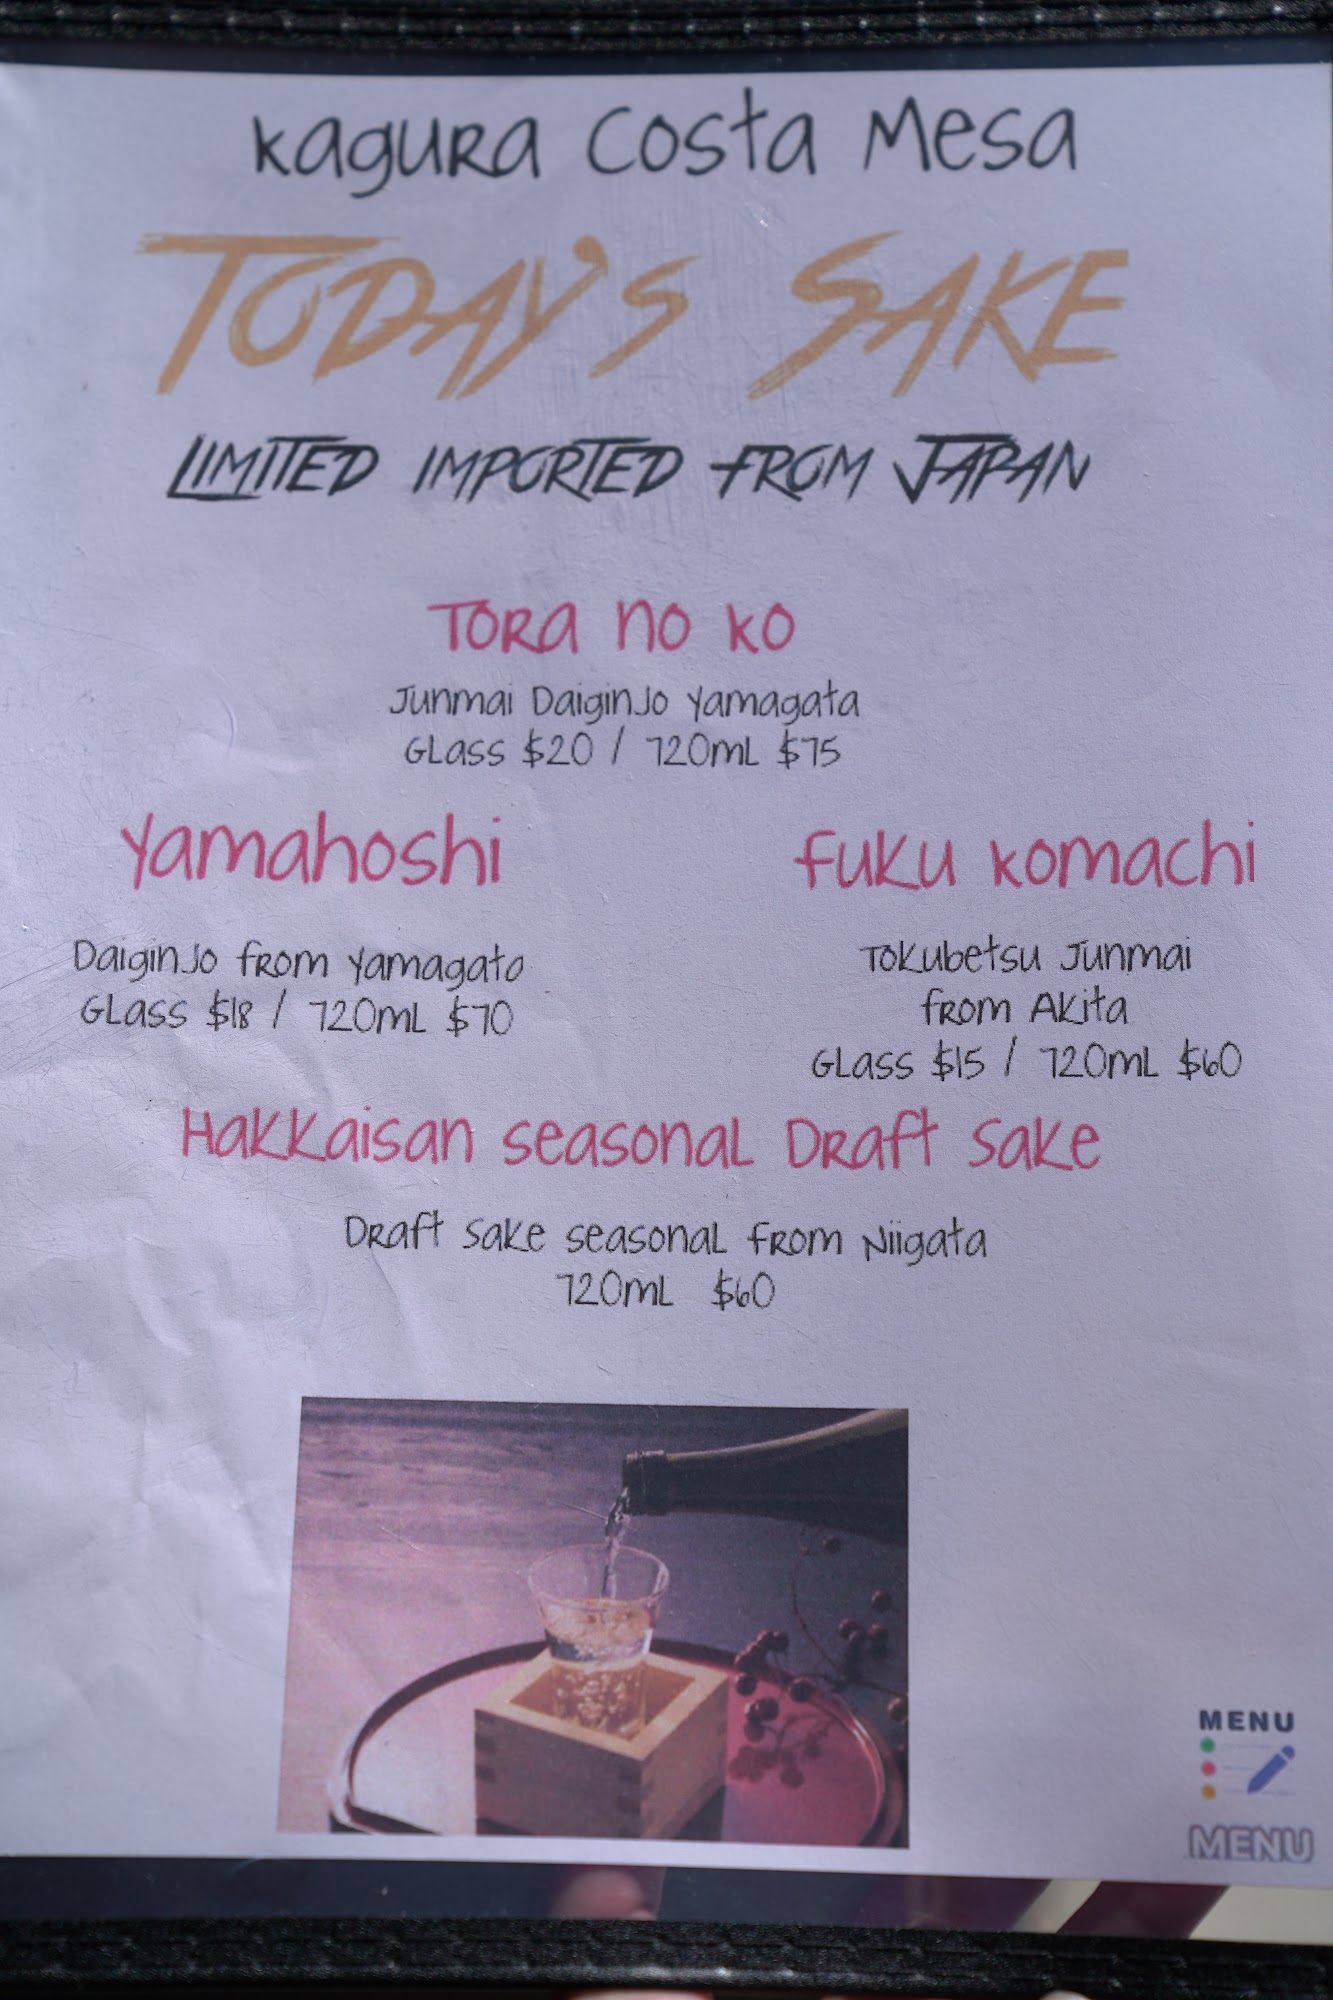 Kagura Costa Mesa
TODAY'S SAKE
LIMITED IMPORTED FROM JAPAN
Tora no ko
Junmai Daiginjo Yamagata
Glass $20 / 720mL $75
Yamahoshi
Daiginjo from Yamagato
Glass $18 / 720mL $70
Fuku Komachi
Tokubetsu Junmai
from Akita
Glass $15 / 720mL $60
Hakkaisan Seasonal Draft Sake
Draft Sake seasonal from Niigata
720mL $60
MENU
MENU